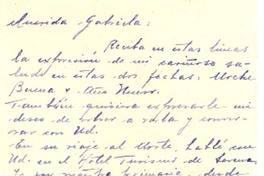 Querida Gabriela:
Reciba en estas líneas
la expresión de mi cariñoso sa-
ludo en estas dos fechas: Noche
Buena y Año Nuevo.
También quisiera expresarle mi
deseo de haber a solas y conver-
sar con Ud.
En su viaje al Norte, hablé con
Ud. en el Hotel Turismo de Serena.
Yo soy maestra primaria, desde